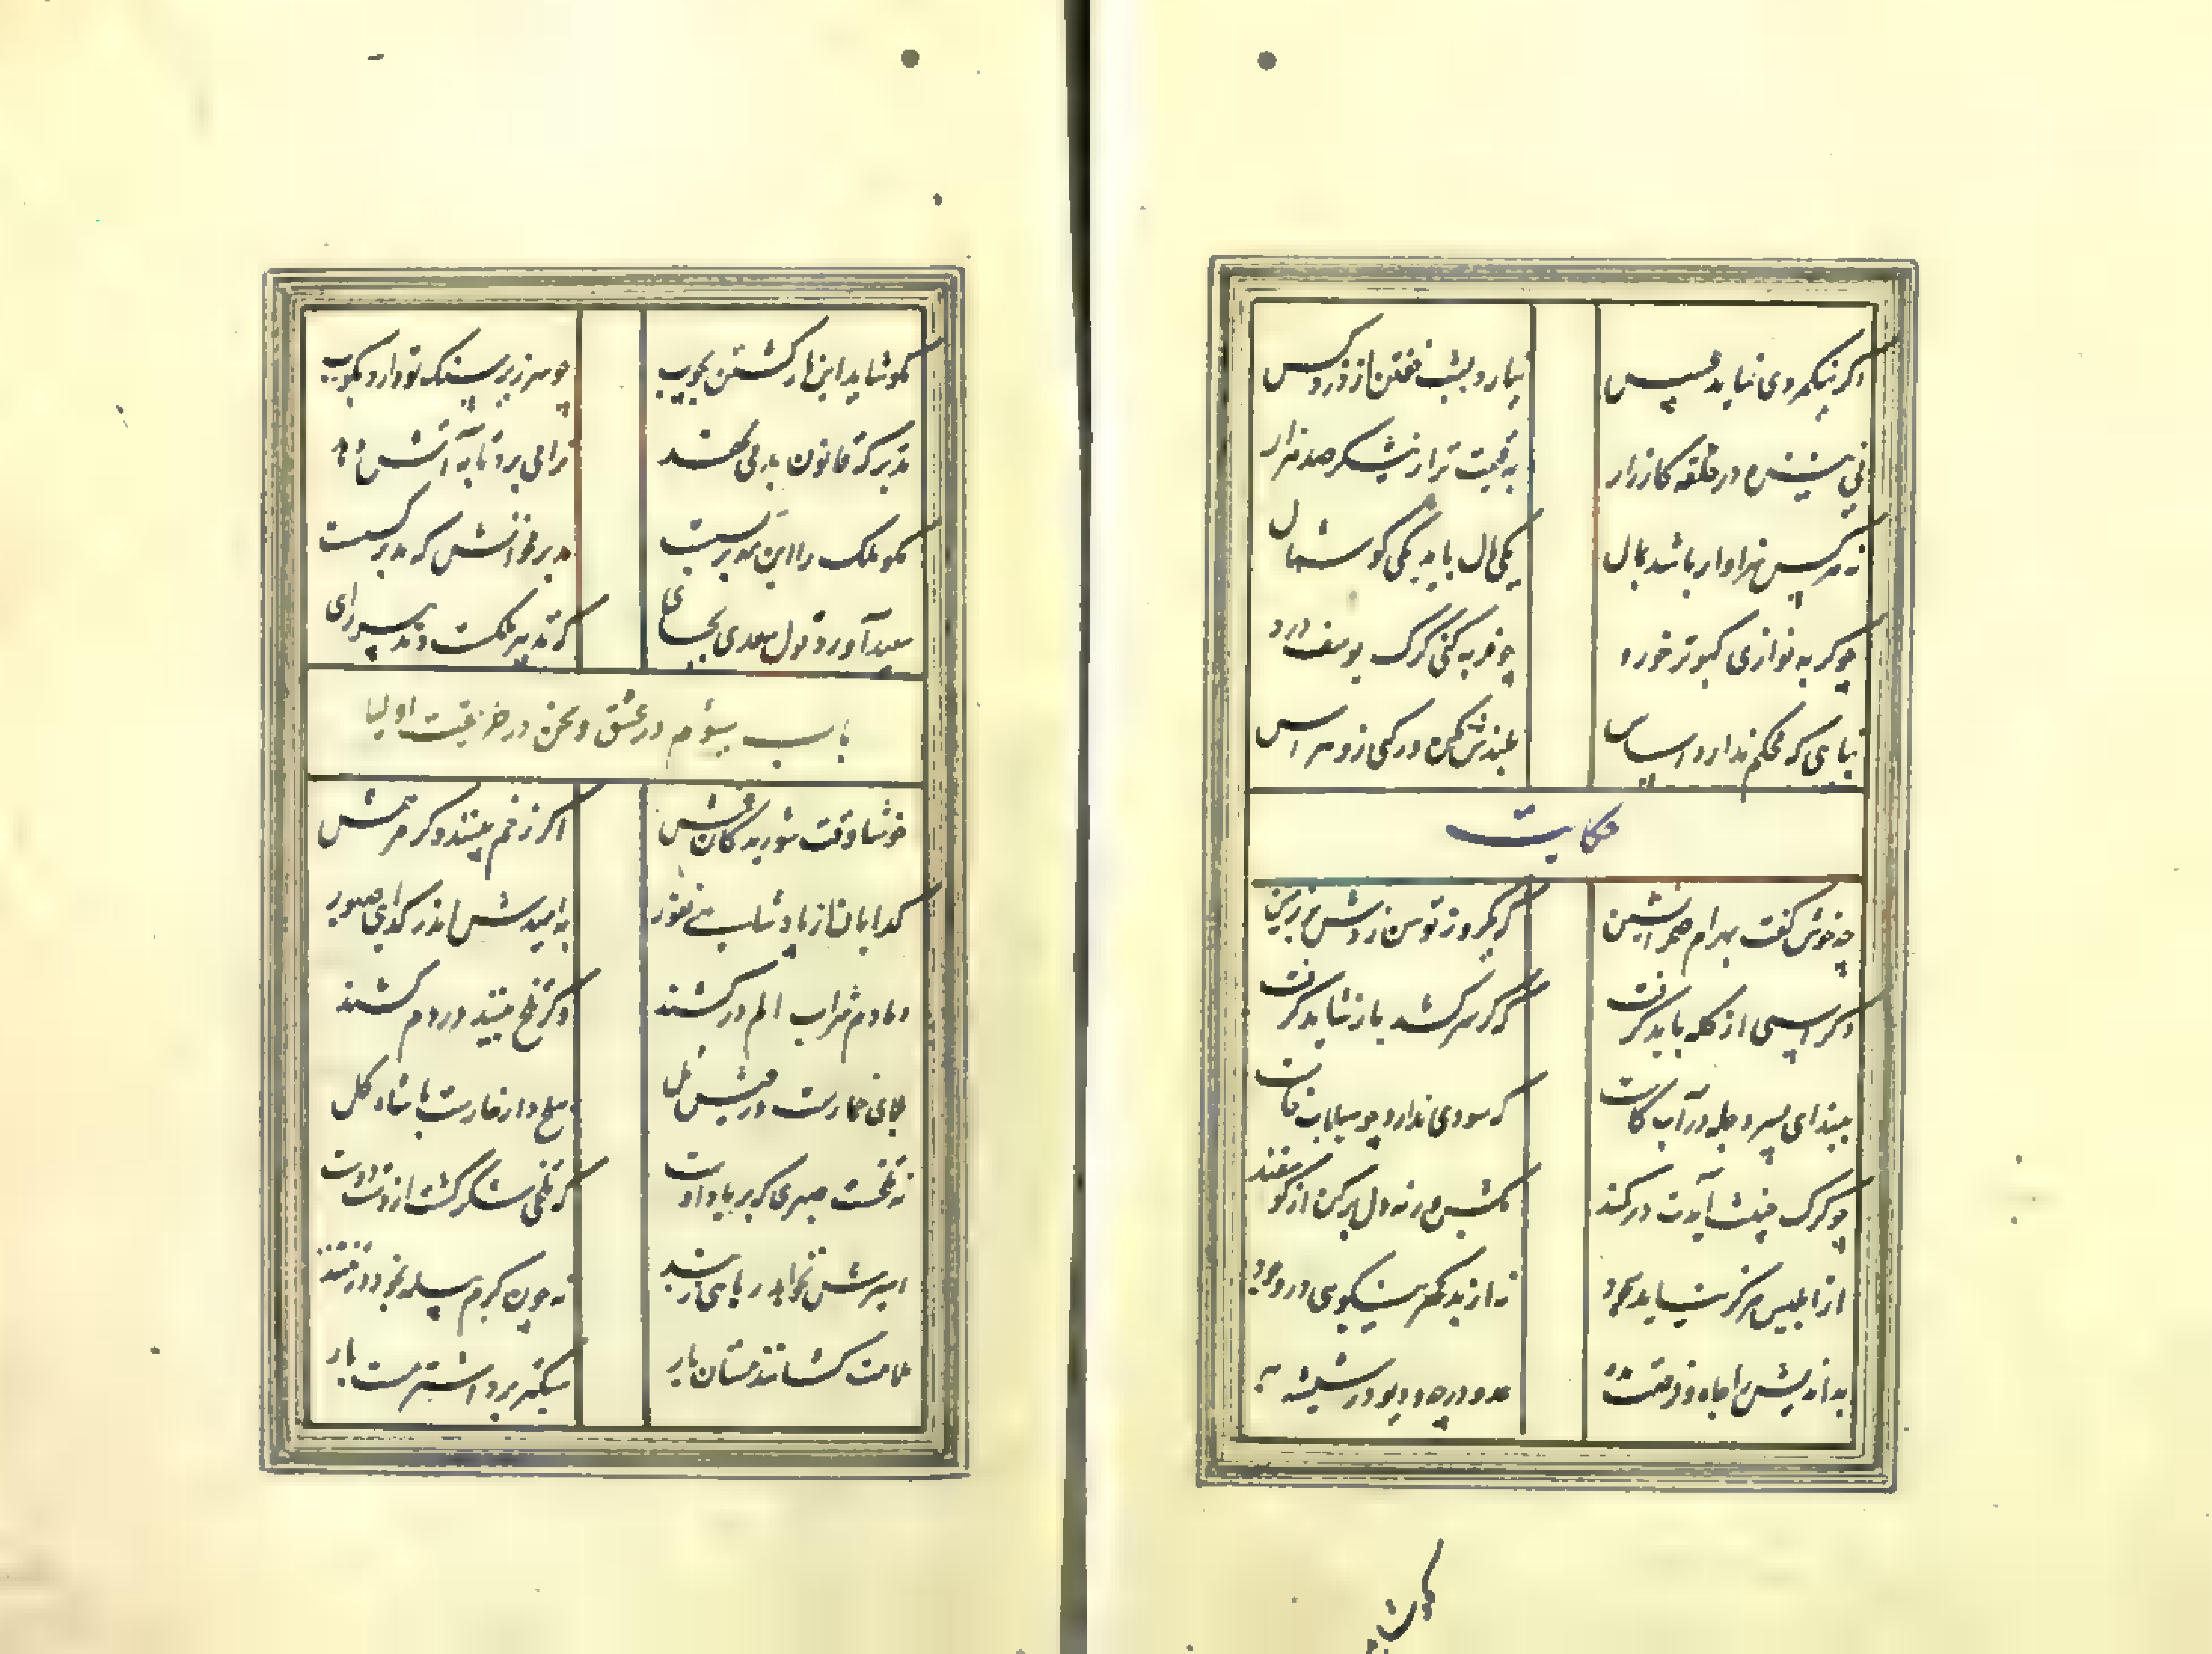 اگر نیکمردی نماید عسس
نیارد بشب خفتن از دزد کس
نی نیزه در حلقه کارزار
به قیمت تر از نیشکر صد هزار
نه هر کس سزاوار باشد بمال
یکی مال باید یکی گوشمال
چو گربه نوازی کبوتر خورد
چو فربه کنی گرگ یوسف درد
بنایی که محکم ندارد اساس
بلندش مکن ور کنی زو هراس
حکایت
چه خوش گفت بهرام صحرانشین
که یکروز توسن زدش بر زمین
دگر اسپی از گله باید گرفت
که گر سر کشد باز شاید گرفت
ببند ای پسر دجله در آب کاست
که سودی ندارد چو سیلاب خاست
چو گرگ خبیث آیدت در کمند
بکش ورنه دل برکن از گوسفند
از ابلیس هرگز نیاید سجود
نه از بدگهر نیکویی در وجود
بداندیش را جاه و فرصت مده
عدو در چه و دیو در شیشه به
مگو شاید این مار کشتن بچوب
چو سر زیر سنگ تو دارد بکوب
مدبر که قانون بد می نهد
ترا می برد تا به آتش دهد
مگو ملک را این مدبر بست
مدبر مخوانش که مدبر کست
سعید آورد قول سعدی بجای
که تدبیر ملکست و تدبیر رای
باب سیوم در عشق و محن در طریقت اولیا
خوشا وقت شوریدگان غمش
اگر زخم بینند وگر مرهمش
گدایان از پادشاهی نفور
به امیدش اندر گدایی صبور
دمادم شراب الم درکشند
وگر تلخ بینند دردم کشند
بلای خمارست در عیش مل
سلحدار خارست با شاه گل
نه تلخست صبری که بر یاد اوست
که تلخی شکر گشت از دست دوست
اسیرش نخواهد رهایی ز بند
ملامت کشانند مستان یار
سبکتر برد اشتر مست بار